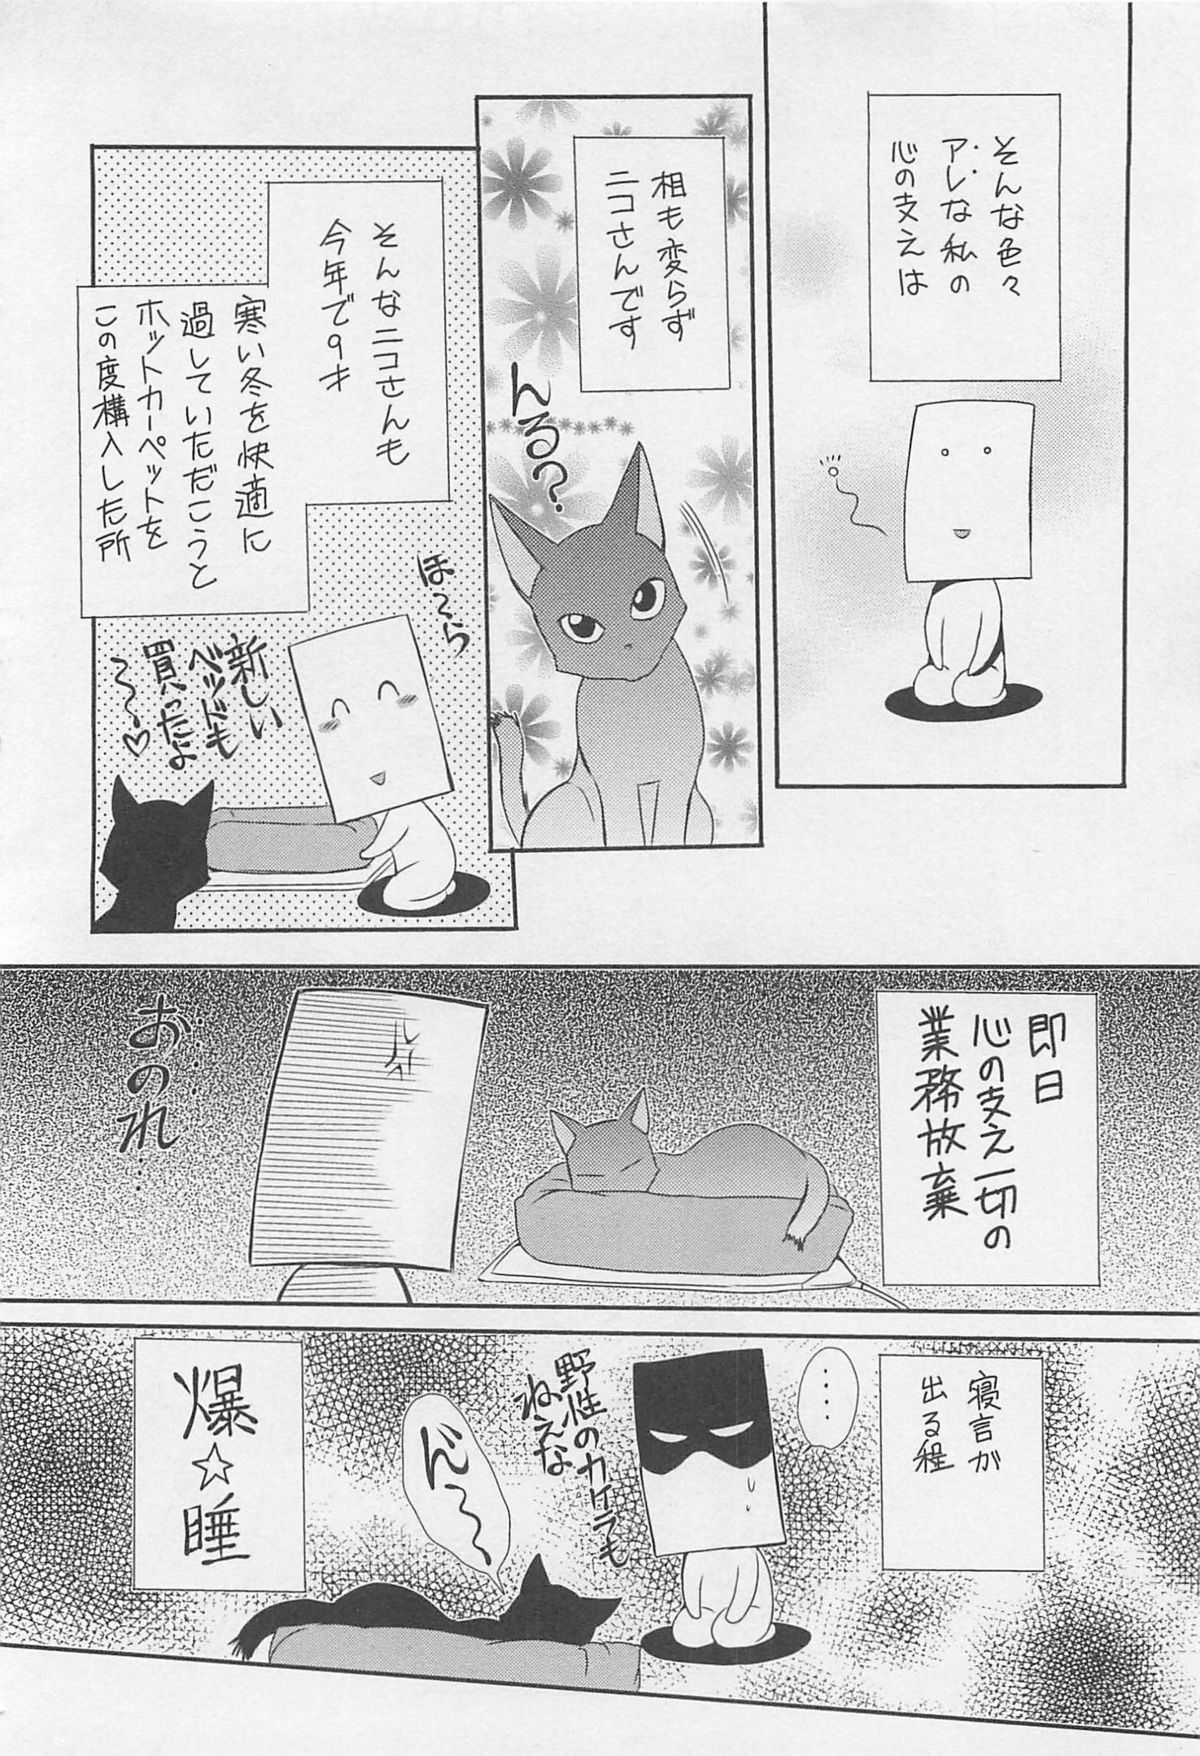 そんな色々
アレな私の
心の支えは
相も変らず
ニコさんです
んる?
そんなニコさんも
今年で9才
寒い冬を快適に
過していただこうと
ホットカーペットを
この度構入した所
ほ〜ら
新しい
ベッドも
買ったよ
〜〜♡
即日
心の支え一切の
業務放棄
おのれ…
寝言が
出る程
…
野性のカケラも
ねえな
ん〜
爆☆睡